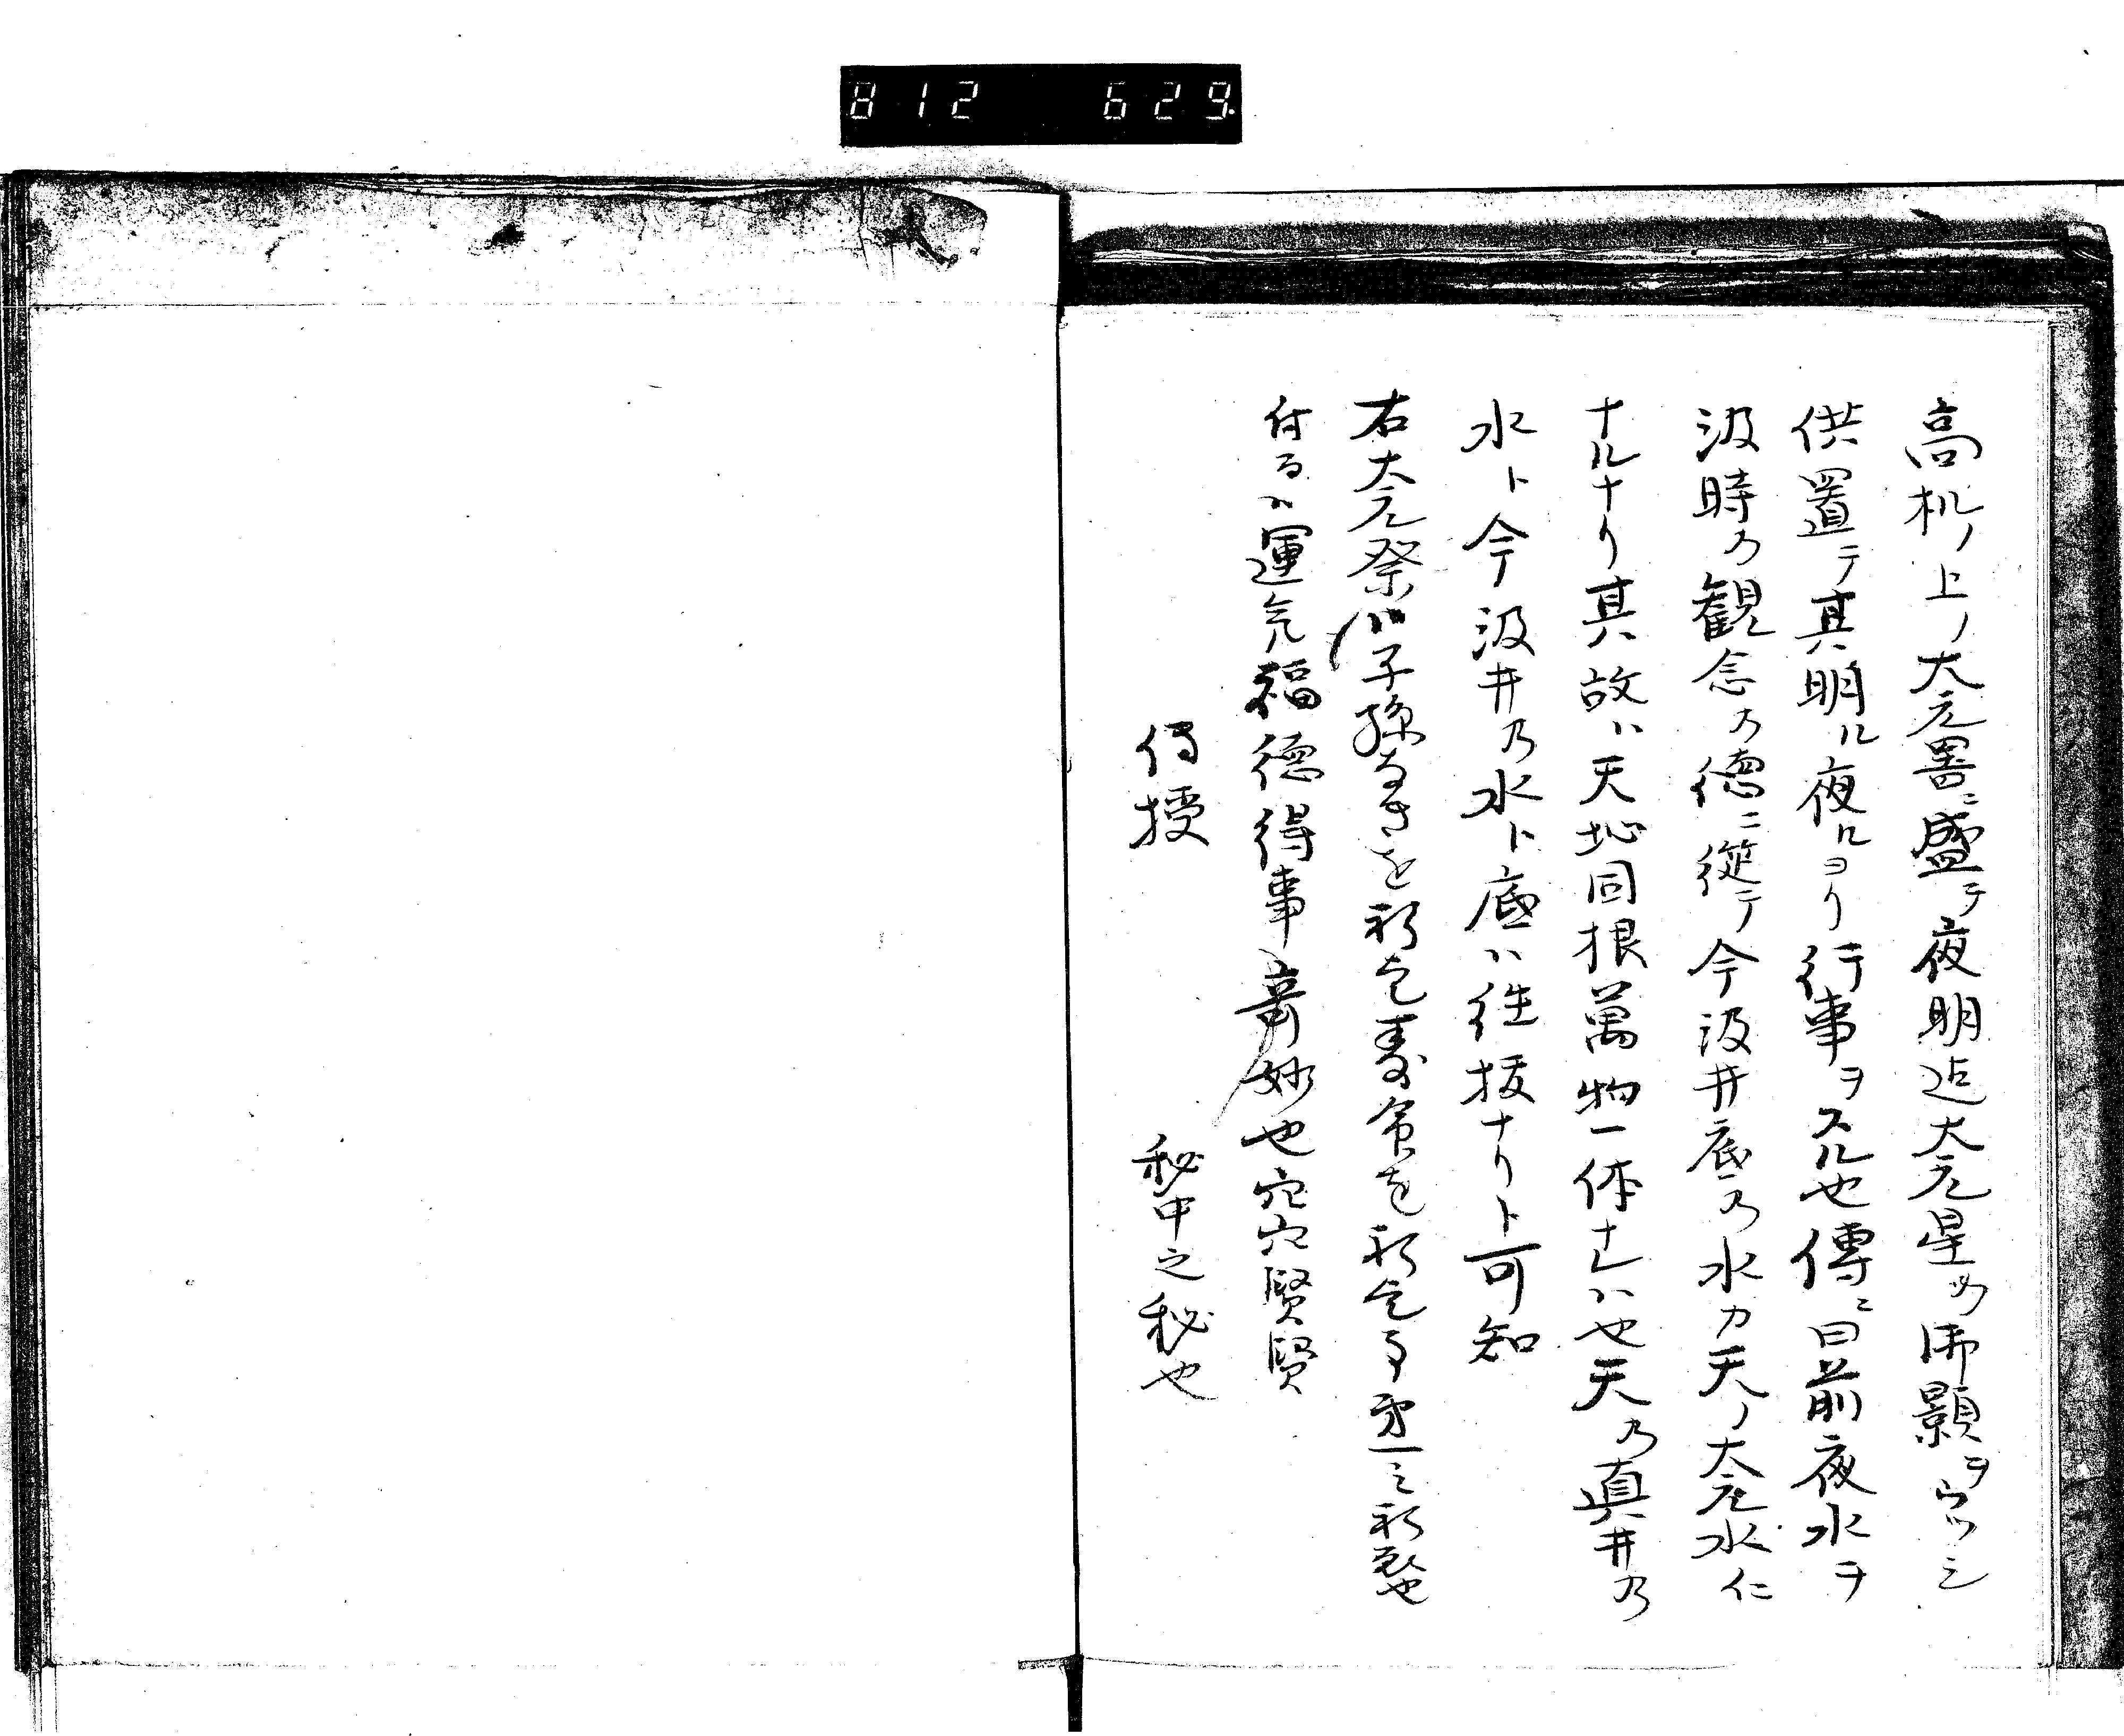 812 629
高机ノ上ノ大元噐ニ盛テ夜明迠大元星ノ御顥ヲウツシ
供置テ其明ル夜ルヨリ行事ヲスル也傳ニ曰前夜水ヲ
汲時乃観念乃徳ニ従テ今汲井底乃水カ天ノ大元水仁
ナルナリ其故ハ天地同根萬物一体ナレハ也天乃真井乃
水ト今汲井乃水ト底ハ往抜ナリト可知
右大元祭ハ子孫なきを祈乞寿命を祈乞る第一之祈也
付る運気福徳得事奇妙也穴穴賢賢
傳授 秘中之秘也